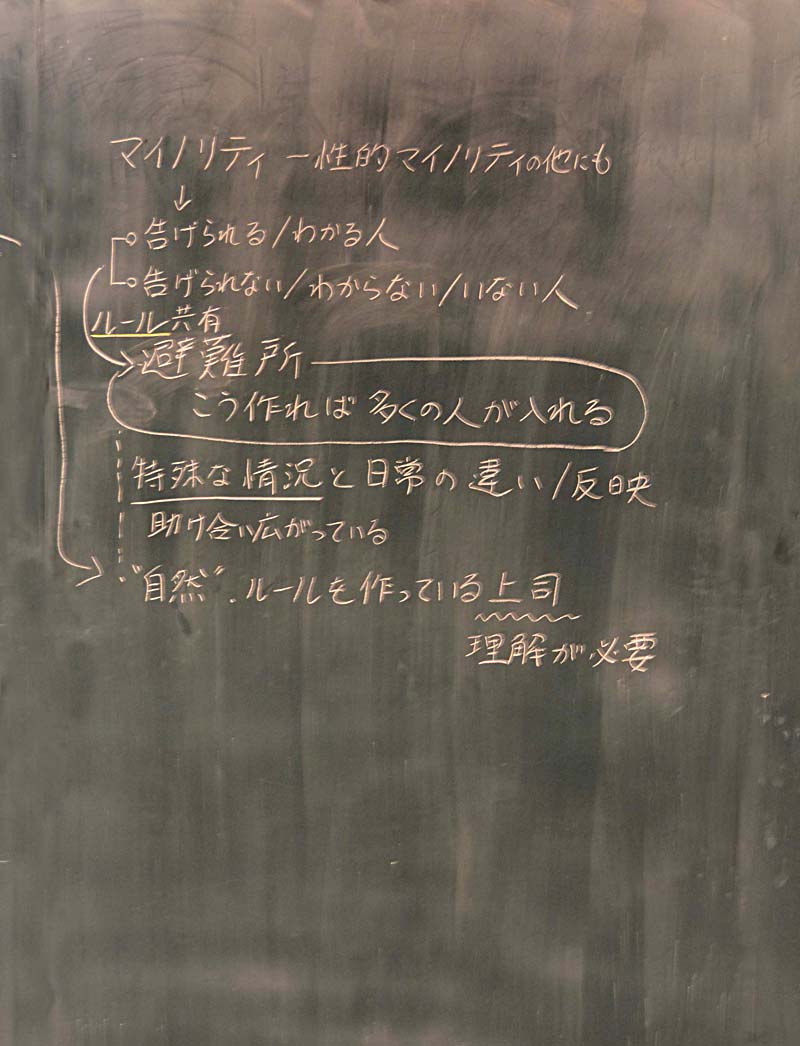 マイノリティ ー性的マイノリティの他にも
↓
告げられる/わかる人
告げられない/わからない/いない人
ルール共有
避難所
こう作れば多くの人が入れる
特殊な情況と日常の違い/反映
助け合い広がっている
"自然".ルールを作っている上司
理解が必要